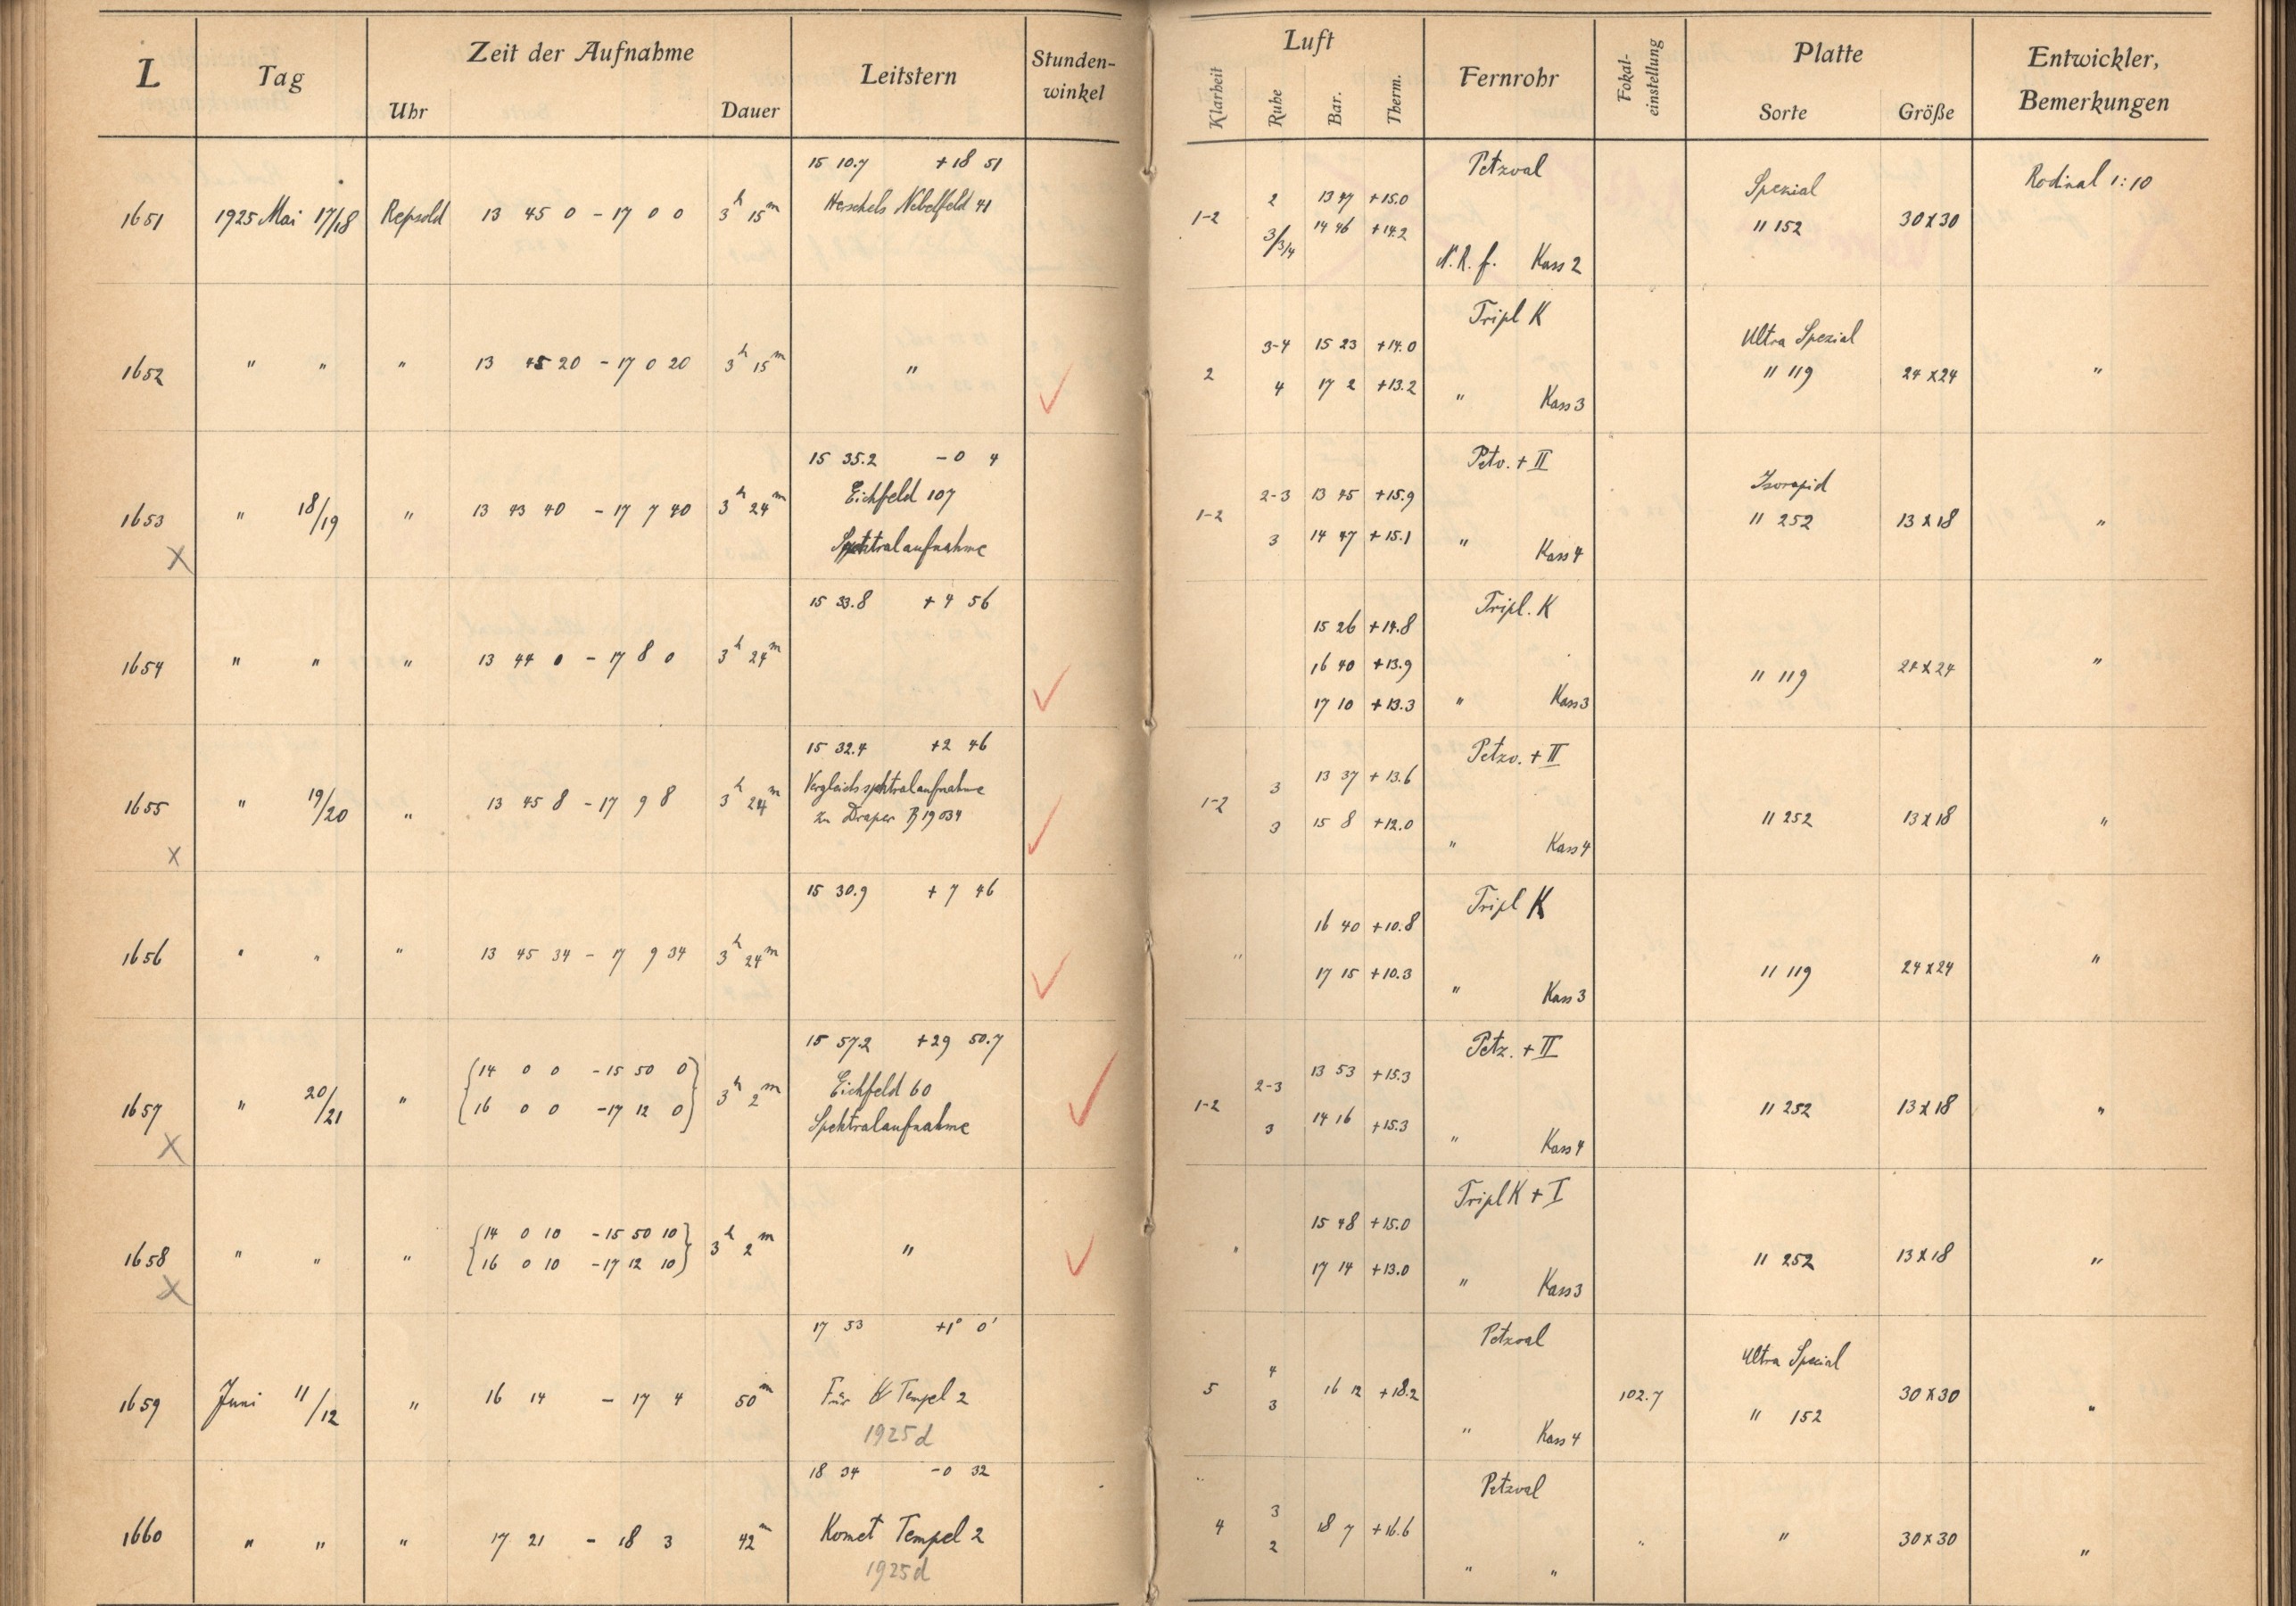 L Tag Zeit der Aufnahme Leitstern Stunden-winkel Luft Fernrohr Fokal-einstellung Platte Entwickler, Bemerkungen
Uhr Dauer Klarheit Ruhe Bar. Therm. Sorte Größe
15 10.7 +18 51 Petzval
1651 1925 Mai 17/18 Repsold 13 45 0 - 17 0 0 3h 15m Herschels Nebelfeld 41 1-2 2 13 47 +15.0 Spezial 30x30 Rodinal 1:10
3/3/4 14 46 +14.2 " 152
N.R.f. Kass 2
Tripl K
1652 " " " 13 45 20 - 17 0 20 3h 15m " 2 3-4 15 23 +14.0 Ultra Spezial 24x24 "
4 17 2 +13.2 " Kass 3 " 119
15 35.2 -0 4 Petv. + II
1653 " 18/19 " 13 43 40 - 17 7 40 3h 24m Eichfeld 107 1-2 2-3 13 45 +15.9 Isorapid 13x18 "
x Spektralaufnahme 3 14 47 +15.1 " Kass 4 " 252
15 33.8 +4 56 Tripl. K
1654 " " " 13 44 0 - 17 8 0 3h 24m 15 26 +14.8
16 40 +13.9 " 119 24x24 "
17 10 +13.3 " Kass 3
15 32.4 +2 46 Petzv. + II
1655 " 19/20 " 13 45 8 - 17 9 8 3h 24m Vergleichsspektralaufnahme 1-2 3 13 37 +13.6
x zu Draper B 19034 3 15 8 +12.0 " Kass 4 " 252 13x18 "
15 30.9 +7 46 Tripl K
1656 " " " 13 45 34 - 17 9 34 3h 24m " 16 40 +10.8
17 15 +10.3 " Kass 3 " 119 24x24 "
15 57.2 +29 50.7 Petz. + II
1657 " 20/21 " {14 0 0 - 15 50 0} 3h 2m Eichfeld 60 1-2 2-3 13 53 +15.3
x {16 0 0 - 17 12 0} Spektralaufnahme 3 14 16 +15.3 " Kass 4 " 252 13x18 "
Tripl K + I
1658 " " " {14 0 10 - 15 50 10} 3h 2m " " 15 48 +15.0
x {16 0 10 - 17 12 10} 17 14 +13.0 " Kass 3 " 252 13x18 "
17 53 +1° 0' Petzval
1659 Juni 11/12 " 16 14 - 17 4 50m Für Tempel 2 5 4 16 12 +18.2 102.7 Ultra Spezial 30x30 "
1925d 3 " Kass 4 " 152
18 34 -0 32 Petzval
1660 " " " 17 21 - 18 3 42m Komet Tempel 2 4 3 18 7 +16.6 " " 30x30 "
1925d 2 " "